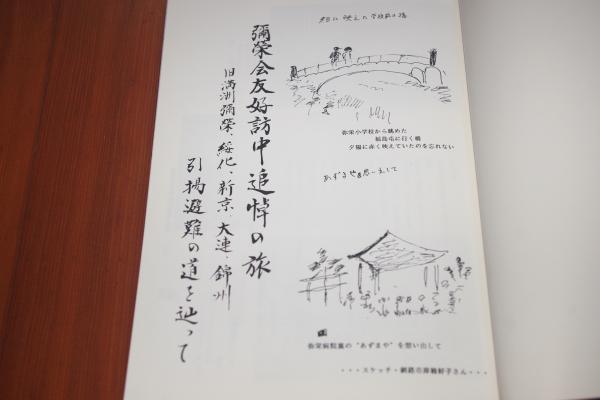 彌榮会友好訪中追悼の旅
旧満洲彌榮、綏化、新京、大連、錦州
引揚避難の道を辿って
夕日に映えた学校前の橋
弥栄小学校から眺めた
福島屯に行く橋
夕陽に赤く映えていたのを忘れない
弥栄病院裏の“あずまや”を想い出して
・・・スケッチ・釧路市
好子さん・・・